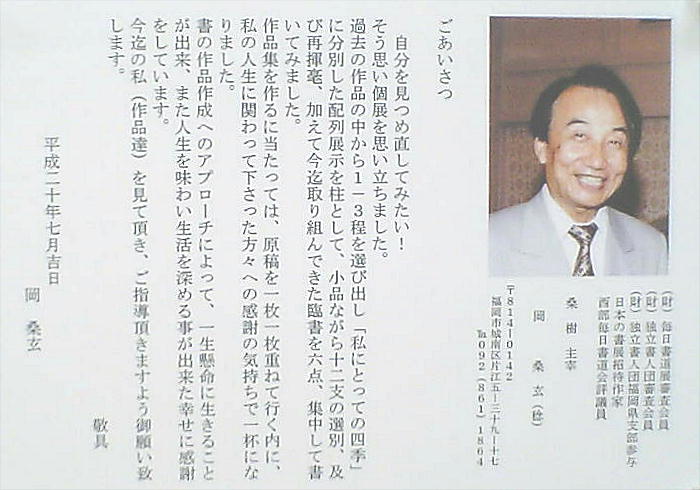 (財)毎日書道展審査会員
(財)独立書人団審査会員
(財)独立書人団福岡県支部参与
日本の書展招待作家
西部毎日書道会評議員
桑樹 主宰
岡 桑玄(稔)
〒814―0142
福岡市城南区片江五―三十九―十七
℡092(861)1864
ごあいさつ
自分を見つめ直してみたい！
そう思い個展を思い立ちました。
過去の作品の中から1－3程を選び出し「私にとっての四季」
に分別した配列展示を柱として、小品ながら十二支の選別、及
び再揮毫、加えて今迄取り組んできた臨書を六点、集中して書
いてみました。
作品集を作るに当たっては、原稿を一枚一枚重ねて行く内に、
私の人生に関わって下さった方々への感謝の気持ちで一杯にな
りました。
書の作品作成へのアプローチによって、一生懸命に生きること
が出来、また人生を味わい生活を深める事が出来た幸せに感謝
をしています。
今迄の私(作品達)を見て頂き、ご指導頂きますよう御願い致
します。
敬具
平成二十年七月吉日
岡 桑玄